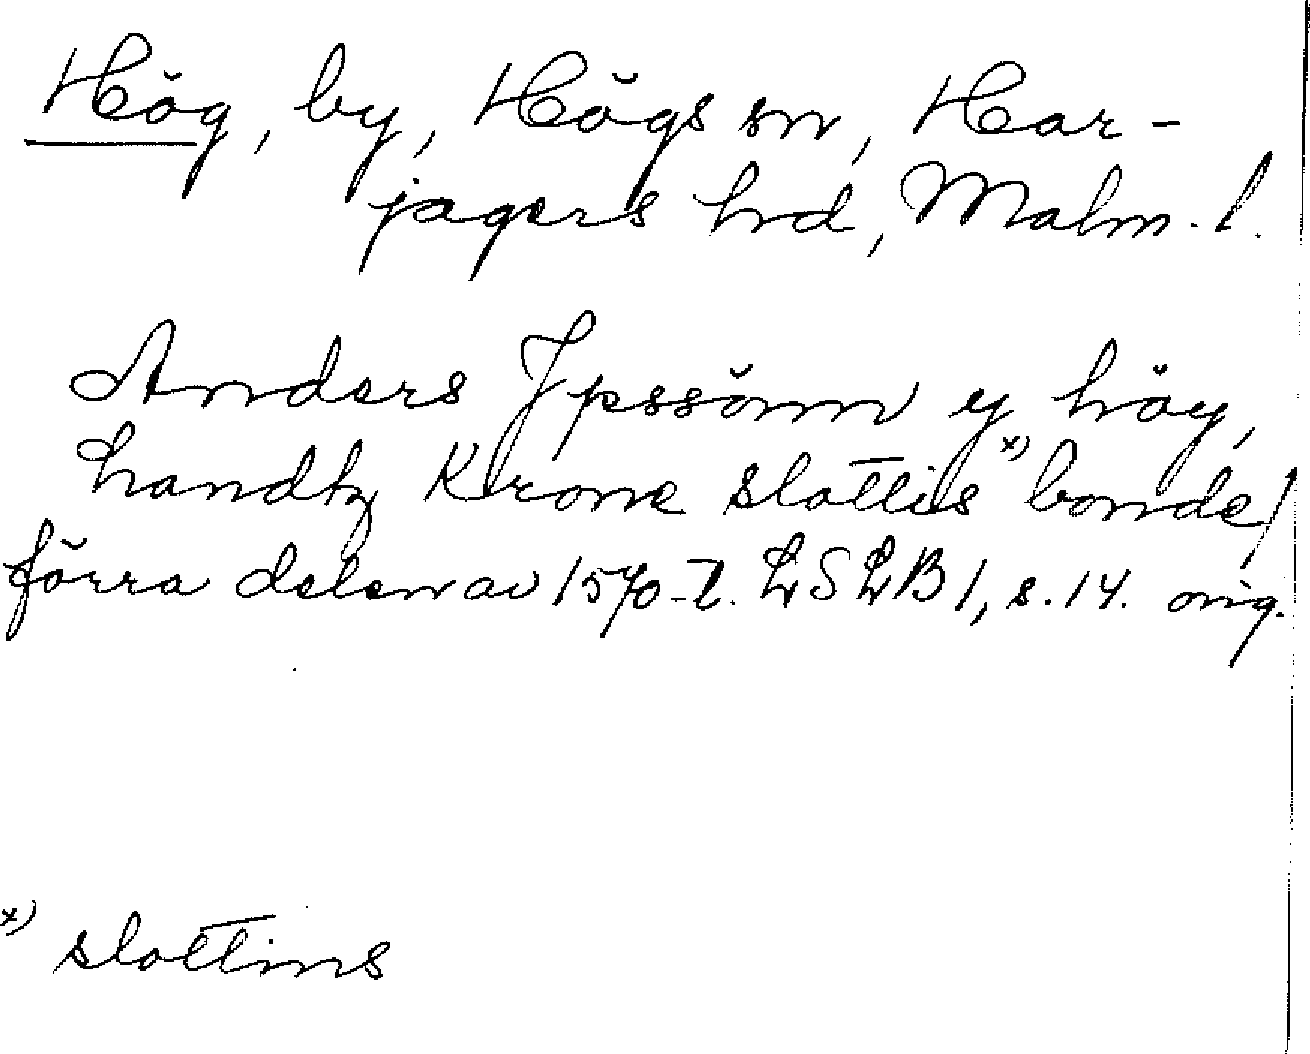 Hög, by, Högs sn, Har-
jagers hd, Malm. l.
Anders Jpssönn y höy,
Landtz Krone slottis x) bonde/
förra delen av 1570-t. LSLB 1, s. 14. orig.
x) slottins